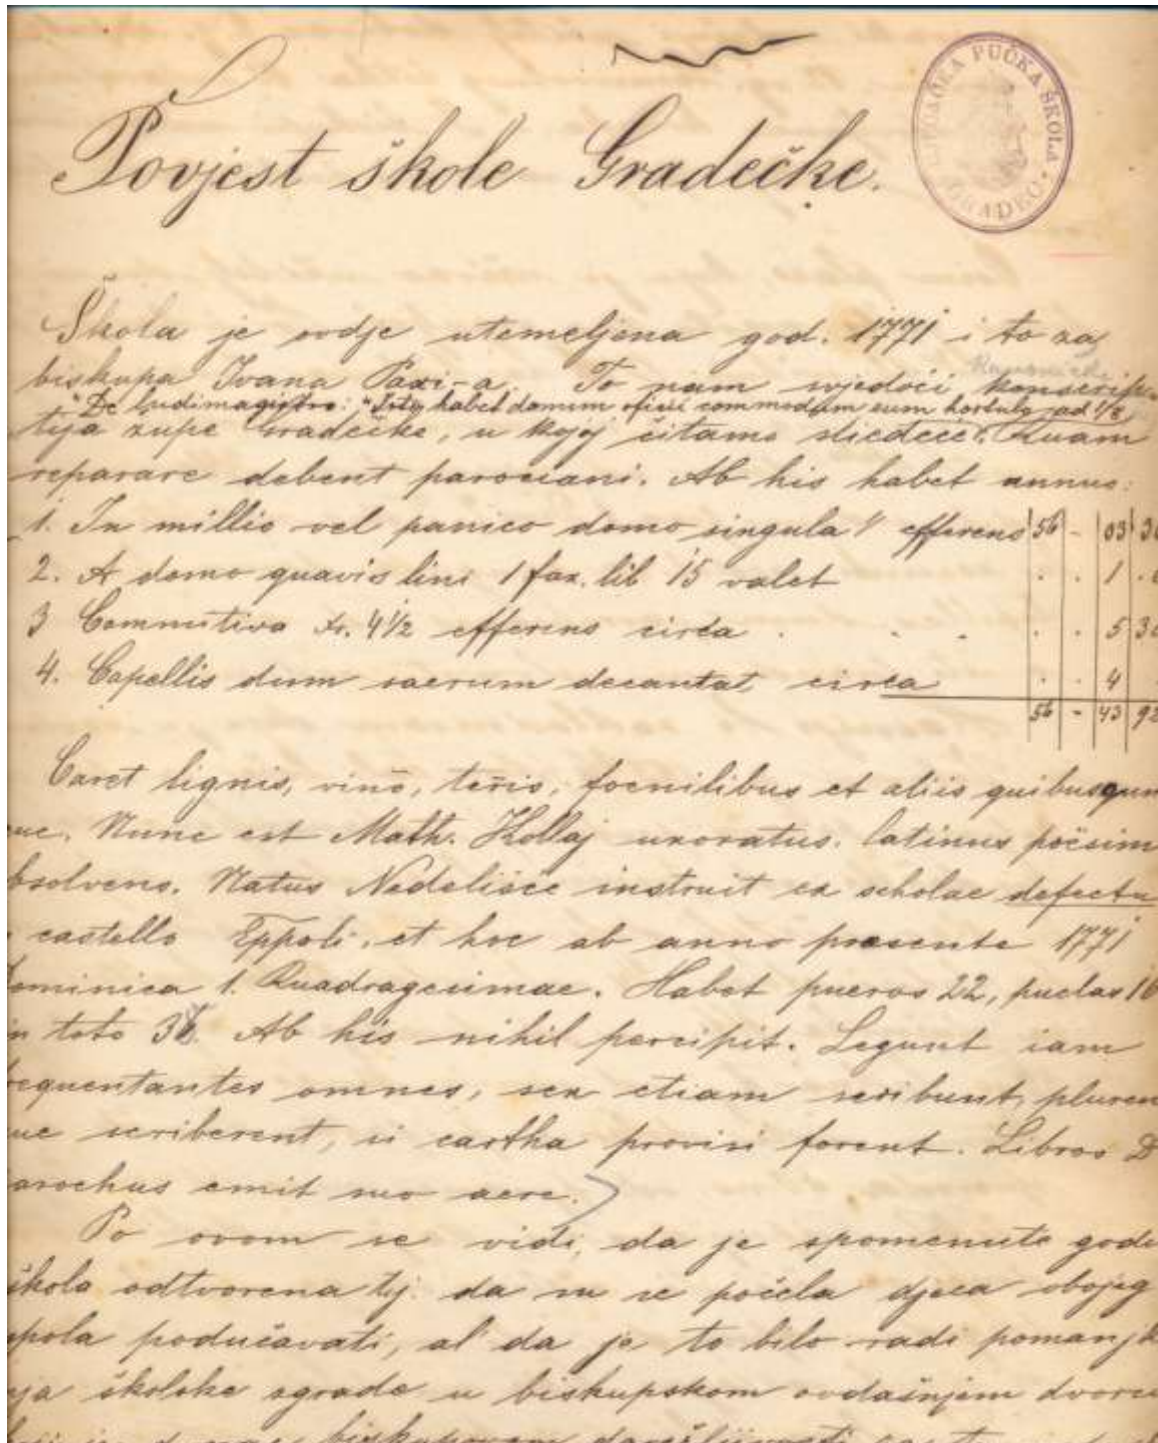 Povjest škole Gradečke.
PUČKA ŠKOLA
GRADEC
Škola je ovdje utemeljena god. 1771 i to za
biskupa Ivana Paxi-a. To nam svjedoči konskrip-
"De ludimagistro: "Iste habet domum commodam cum hortulo ad 1/8
tija župe Gradečke, u kojoj čitamo sliedeće: Quam
reparare debent parociani. Ab his habet annue:
1. In millio vel panico domo singula efferens 56 - 03 30
2. A domo quavis lini 1 fax. lib 15 valet . . 1 .
3 Commutiva Xr. 4 1/2 efferens circa . . . . . 5 30
4. Capellis dum sacrum decantat, circa . . 4
56 - 43 92
Caret lignis, vino, terris, foenilibus et aliis quibusqun
ue. Nunc est Math. Kollaj uxoratus. latinus poësim
bsolvens. Natus Nedelišće instruit ex scholae defectu
castello Eppoli, et hoc ab anno praesente 1771
ominica 1. Quadragesimae. Habet pueros 22, puelas 16
n toto 38. Ab his nihil percipit. Legunt iam
requentantes omnes, sex etiam scribunt, plures
ue scriberent, si cartha provisi forent. Libros D
arochus emit suo aere.
Po ovom se vidi, da je spomenute godi
škola odtvorena tj. da su se počela djeca obojeg
spola podučavati, al' da je to bilo radi pomanjk
nja školske zgrade u biskupskom ovdašnjem dvoru